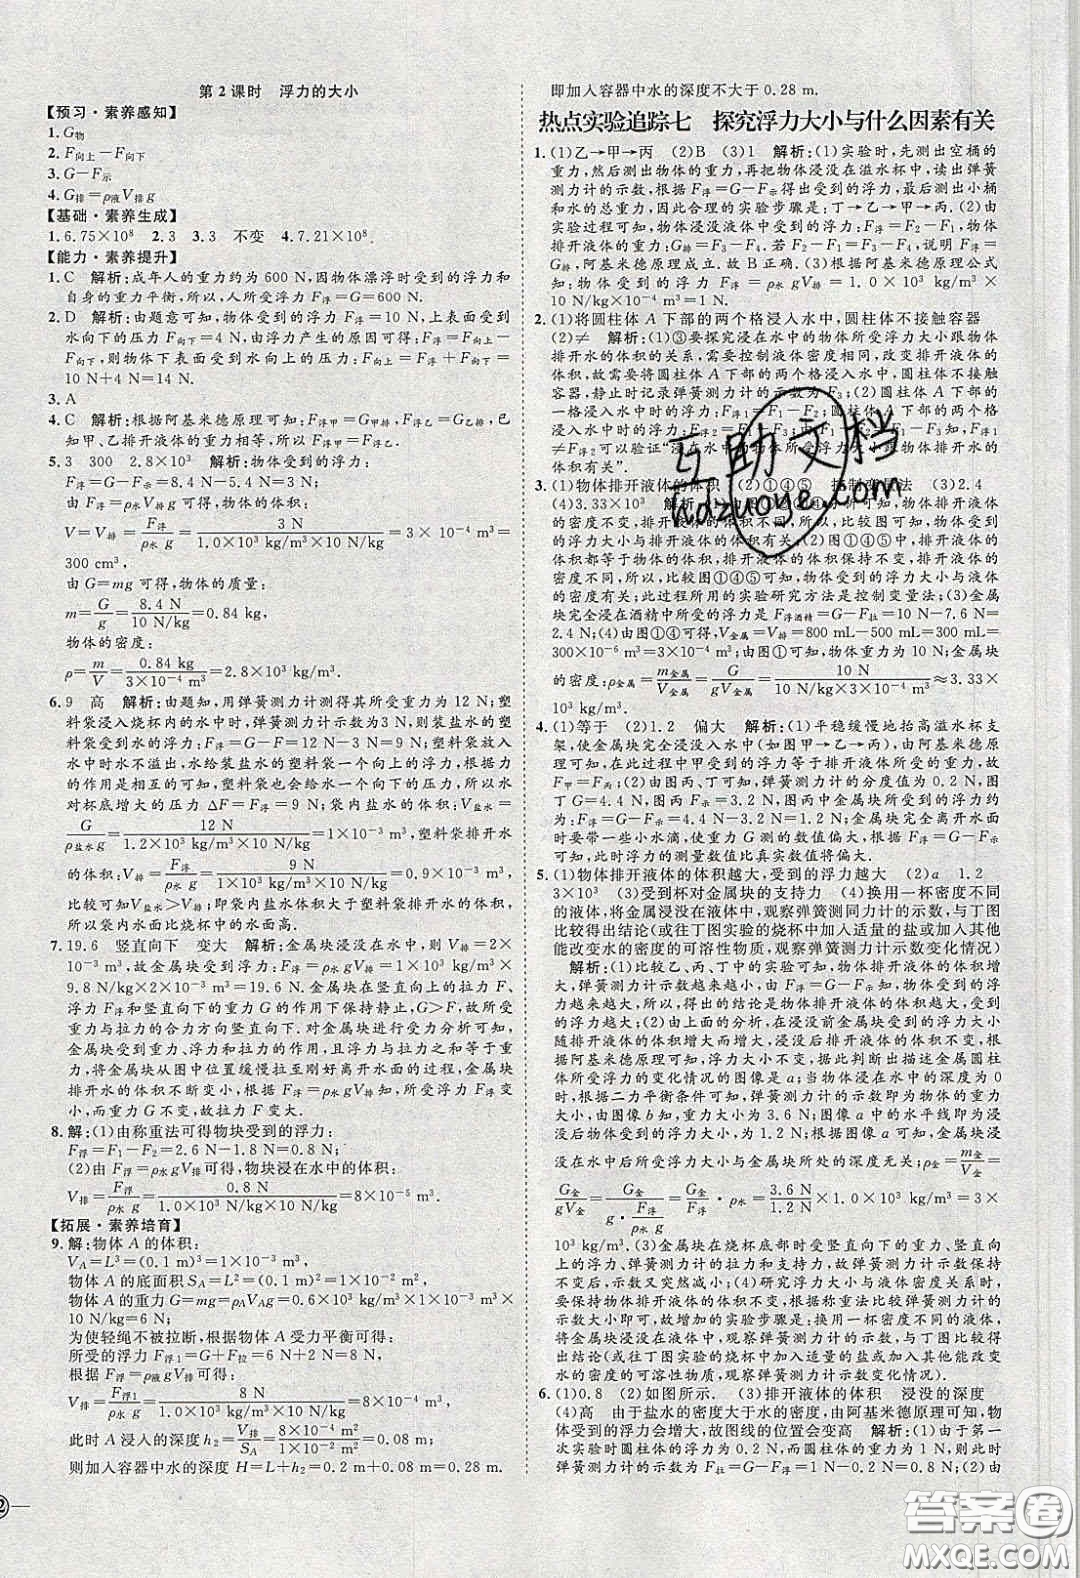 第2课时 浮力的大小
【预习·素养感知】
1. G物
2. F向上－F向下
3. G－F示
4. G排＝ρ液V排g
【基础·素养生成】
1. 6.75×10⁸ 2. 3 3. 3 不变 4. 7.21×10⁸.
【能力·素养提升】
1. C 解析:成年人的重力约为600 N,因物体漂浮时受到的浮力和
自身的重力平衡,所以,人所受浮力F浮＝G＝600 N.
2. D 解析:由题意可知,物体受到的浮力F浮＝10 N,上表面受到
水向下的压力F向下＝4 N,由浮力产生的原因可得:F浮＝F向上－
F向下,则物体下表面受到水向上的压力:F向上＝F浮＋F向下＝
10 N＋4 N＝14 N.
3. A
4. C 解析:根据阿基米德原理可知,F浮甲＝G甲排,F浮乙＝G乙排,已
知甲、乙排开液体的重力相等,所以,F浮甲＝F浮乙.
5. 3 300 2.8×10³ 解析:物体受到的浮力:
F浮＝G－F浮＝8.4 N－5.4 N＝3 N.
由F浮＝ρ水gV排得,物体的体积:
V＝V排＝F浮/ρ水g＝3 N/1.0×10³ kg/m³×10 N/kg＝3×10⁻⁴ m³＝
300 cm³,
由G＝mg可得,物体的质量:
m＝G/g＝8.4 N/10 N/kg＝0.84 kg,
物体的密度:
ρ＝m/V＝0.84 kg/3×10⁻⁴ m³＝2.8×10³ kg/m³.
6. 9 高 解析:由题知,用弹簧测力计测得其所受重力为12 N;塑
料袋浸入烧杯内的水中时,弹簧测力计示数为3 N,则装盐水的塑
料袋受到水的浮力:F浮＝G－F＝12 N－3 N＝9 N;塑料袋放入
水中时水不动,水给装盐水的塑料袋一个向上的浮力,根据力
的作用是相互的可知,塑料袋给水一个向下的压力,所以水
对杯底增大的压力ΔF＝F浮＝9 N;袋内盐水的体积:V盐水＝
G/ρ盐水g＝12 N/1.2×10³ kg/m³×10 N/kg＝1×10⁻³ m³,塑料袋排开水
的体积:V排＝F浮/ρ水g＝9 N/1×10³ kg/m³×10 N/kg＝0.9×10⁻³ m³,
比较可知V盐水＞V排,即:袋内盐水体积大于塑料袋排开水的体积,
所以袋内水面比烧杯中的水面高.
7. 19.6 竖直向下 变大 解析:金属块浸没在水中,则V排＝2×
10⁻³ m³,故金属块受到的浮力F浮＝ρ水gV排＝1.0×10³ kg/m³×
9.8 N/kg×2×10⁻³ m³＝19.6 N.金属块在竖直向上的拉力F、
浮力F浮和竖直向下的重力G的作用下保持静止,G＞F,故所受
重力与拉力的合力方向竖直向下.对金属块进行受力分析可知,
金属块受到重力、浮力和拉力的作用,且浮力与拉力之和等于重
力,将金属块从图中位置缓慢拉至刚好离开水面的过程,金属块
排开水的体积不断变小,根据F浮＝ρ水gV排可知,所受浮力F浮变
小,而重力G不变,故拉力F变大.
8. 解:(1)由称重法可得物块受到的浮力:
F浮＝F₁－F₂＝2.6 N－1.8 N＝0.8 N.
(2)由F浮＝ρ水gV排可得,物块浸在水中的体积:
V排＝F浮/ρ水g＝0.8 N/1.0×10³ kg/m³×10 N/kg＝8×10⁻⁵ m³.
【拓展·素养培育】
9. 解:物体A的体积:
V_A＝L³＝(0.1 m)³＝1×10⁻³ m³,
物体A的底面积S_A＝L²＝(0.1 m)²＝1×10⁻² m²,
物体A的重力G＝mg＝ρ_A V_A g＝0.6×10³ kg/m³×1×10⁻³ m³
×10 N/kg＝6 N;
为使轻绳不被拉断,根据物体A受力平衡可得:
所受的浮力F浮1＝G＋F拉＝6 N＋2 N＝8 N,
根据F浮＝ρ液gV排可得:
V排＝F浮1/ρ水g＝8 N/1.0×10³ kg/m³×10 N/kg＝8×10⁻⁴ m³,
此时A浸入的深度h₂＝V排/S_A＝8×10⁻⁴ m³/1×10⁻² m²＝0.08 m,
则加入容器中水的深度H＝L＋h₂＝0.2 m＋0.08 m＝0.28 m,
即加入容器中水的深度不大于0.28 m.
热点实验追踪七 探究浮力大小与什么因素有关
1. (1)乙→甲→丙 (2)B (3)1 解析:(1)实验时,先测出空桶的
重力,然后测出物体的重力,将物体浸没在溢水杯中,读出弹簧
测力计的示数,根据F浮＝G－F得出受到的浮力,最后测出小桶
和水的总重力,因此合理的实验步骤是:丁→乙→甲→丙.(2)由
实验过程可知,物体受到的浮力:F浮＝G－F示＝F₁－F₂;物体
排开液体的重力:G排＝F₃－F₄.若F₁－F₂＝F₃－F₄,说明F浮
＝G排,阿基米德原理成立.故B正确.(3)实验中,该物体浸没
在水中时,受到的浮力F浮＝ρ水gV排＝1.0×10³ kg/m³×
10 N/kg×10⁻⁴ m³＝1 N.
2. (1)将圆柱体A下部的两个格浸入水中,圆柱体不接触容器
(2)≠ 解析:(1)③要探究浸在水中的物体所受浮力大小跟物
体排开水的体积的关系,需要控制液体密度相同,改变排开液体的
体积,故需要将圆柱体A下部的两个格浸入水中,圆柱体不接触容
器,静止时记录弹簧测力计的示数为F₃.(2)圆柱体A下部的
一格浸入水中时的浮力:F浮1＝F₁－F₂;圆柱体A下部的两个格
浸入水中时的浮力:F浮2＝F₁－F₃;由F₂≠F₃可知,F浮1
≠F浮2可以验证“浸在水中的物体所受浮力大小跟物体排开水的
体积有关”.
3. (1)物体排开液体的体积 (2)①④⑤ 控制变量法 (3)2.4
(4)3.33×10³ 解析:(1)分析图①③④可知,物体排开液体
的密度不变,排开液体的体积不同,所以,比较图可知,物体受到
的浮力大小与排开液体的体积有关;(2)图①④⑤中,排开液体的体
积都等于物体的体积,排开液体的体积保持不变,排开液体的密
度不同,所以,比较图①④⑤可知,物体所受的浮力大小与液体的
密度有关;此过程所用的实验研究方法是控制变量法;(3)金属
块完全浸没在酒精中所受的浮力F浮酒精＝G－F拉＝10 N－7.6 N＝
2.4 N;(4)由图①④可得,V金属＝V排＝800 mL－500 mL＝
300×10⁻⁶ m³＝3×10⁻⁴ m³.由图①知,物体重力为10 N,金属
的密度:ρ金属＝m金属/V金属＝G/gV金属＝10 N/10 N/kg×3×10⁻⁴ m³≈3.33×
10³ kg/m³.
4. (1)等于 (2)1.2 偏大 解析:(1)平稳缓慢地抬高溢水杯支
架,使金属块完全浸没入水中(如图甲→乙→丙),由阿基米德原
理可知,在此过程中甲受到的浮力等于溢出的水所受的重力,故
F甲＝F乙;(2)由图丙、丁可知,弹簧测力计的分度值为0.2 N,图
丁G＝4.4 N,图丙F示＝3.2 N,图丙中金属块所受的浮力约为
F浮＝G－F示＝4.4 N－3.2 N＝1.2 N.金属块完全离开水面时
要带一些小水滴,使重力G测的数值偏大,根据F浮＝G－F示可
知,由此导致浮力的测量数值比真实数值偏大.
5. (1)物体排开液体的体积越大,受到的浮力越大 (2)a 1.2
3×10³ (3)受到杯对金属块的支持力 (4)换用一杯密度不同
的液体,将金属块浸没在液体中,观察弹簧测力计的示数,与丁图
比较得出结论(或往丁图实验的烧杯中加入适量的盐或加入其他
能改变水的密度的可溶性物质,观察弹簧测力计示数变化情况)
解析:(1)比较乙、丙、丁中的实验可知,物体排开液体的体积增
大,弹簧测力计示数越来越小,根据称重法F浮＝G－F可知,受到的
浮力越来越大,故得出的结论是物体排开液体的体积越大,受到的
浮力越大;(2)由上面的分析,在浸没前金属块受到的浮力大小
随排开液体的体积增大而增大,浸没后排开液体的体积不变,根
据阿基米德原理可知,浮力大小不变,据此判断出描述金属圆柱
体所受浮力的变化情况的图像是a;当物体浸入水中的深度为0
时,根据二力平衡条件可知,弹簧测力计的示数即为物体的重力
大小,由图像b知,重力大小为3.6 N;图像a中的水平线即为浸
没时受到的浮力大小,为1.2 N,由图a、b分析可知,金属块浸没
在水中所受的浮力大小与金属块所处的深度无关;ρ金＝m金/V金＝
G金/gV金＝G金/g·F浮/ρ水g＝G金/F浮·ρ水＝3.6 N/1.2 N×1.0×10³ kg/m³＝3×
10³ kg/m³.(3)金属块在烧杯底部时受竖直向下的重力、竖直向上
的浮力、弹簧测力计的拉力和支持力,所以弹簧测力计示数保持不
变后,示数又突然减小;(4)研究浮力大小与液体密度关系时,
要控制物体排开液体的体积不变,根据称重法比较弹簧测力计的
示数大小即可,故增加的实验步骤是:换用一杯密度不同的液体,
将金属块浸没在液体中,观察弹簧测力计的示数,与丁图比较得
出结论(或往丁图实验的烧杯中加入适量的盐或加入其他能改变
水的密度的可溶性物质,观察弹簧测力计示数变化情况).
6. (1)0.8 (2)如图所示. (3)排开液体的体积 浸没的深度
(4)高 由于盐水的密度大于水的密度,由阿基米德原理可知,
物体受到的浮力会增大,故图线的位置会变高 解析:(1)由于第一
次实验时圆柱体的浮力为0.2 N,而浮力为0.2 N时,对应的弹
簧测力计示数为0.7 N,故圆柱体重力G＝F浮＋F＝0.2 N＋
互助文档
hdzuoye.com
答案圈
MXQE.COM